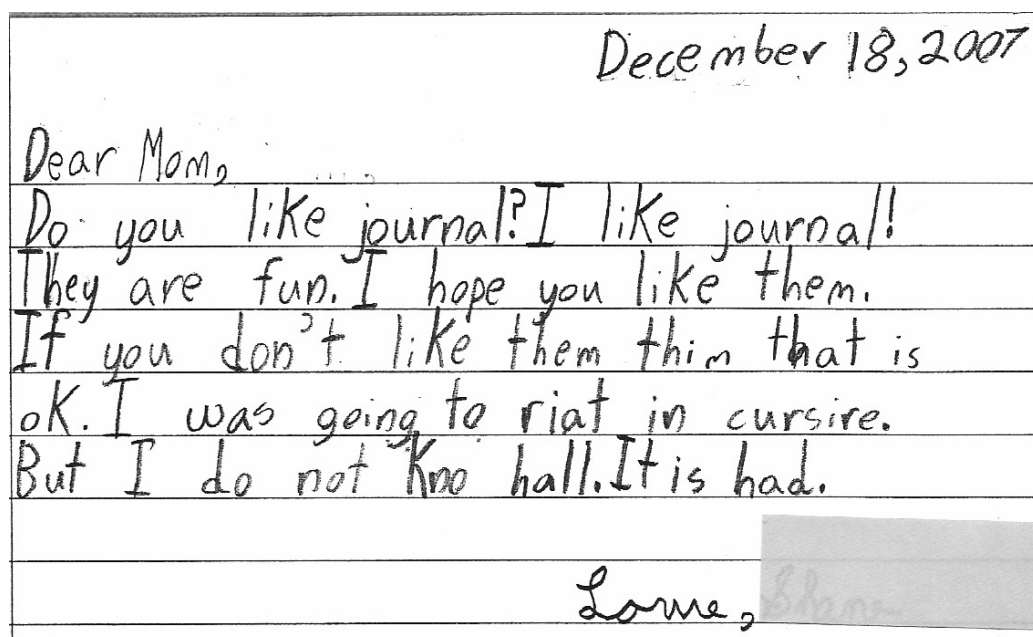 December 18, 2007
Dear Mom,
Do you like journal? I like journal!
They are fun. I hope you like them.
If you don't like them thim that is
oK. I was going to riat in cursire.
But I do not Kno hall. It is had.
Lowe,